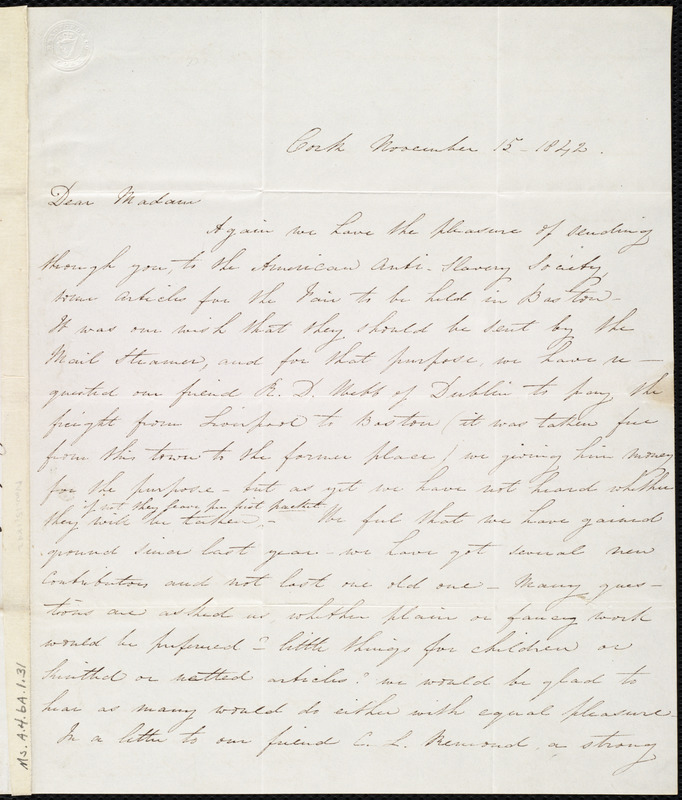 Cork November 15 - 1842.
Dear Madam
Again we have the pleasure of sending
through you, to the American Anti-Slavery Society,
some articles for the Fair to be held in Boston -
It was our wish that they should be sent by the
Mail Steamer, and for that purpose, we have re-
quested our friend R. D. Webb of Dublin to pay the
freight from Liverpool to Boston (it was taken free
from this town to the former place) we giving him money
for the purpose - but as yet we have not heard whether
if not they leave per first packet
they will be taken. - We feel that we have gained
ground since last year - we have got several new
Contributors and not lost one old one - Many ques-
tions are asked us, whether plain or fancy work
would be preferred - little things for children or
knitted or netted articles? we would be glad to
hear as many would do either with equal pleasure -
In a letter to our friend C. L. Remond, a strong
Ms. A.4.6A.1.31